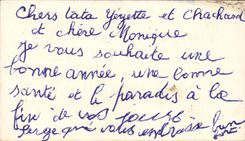 Chers tata Yoyette et Chachand
et chère Monique
je vous souhaite une
bonne année, une bonne
santé et le paradis à la
fin de vos jours
Serge qui vous embrasse bien